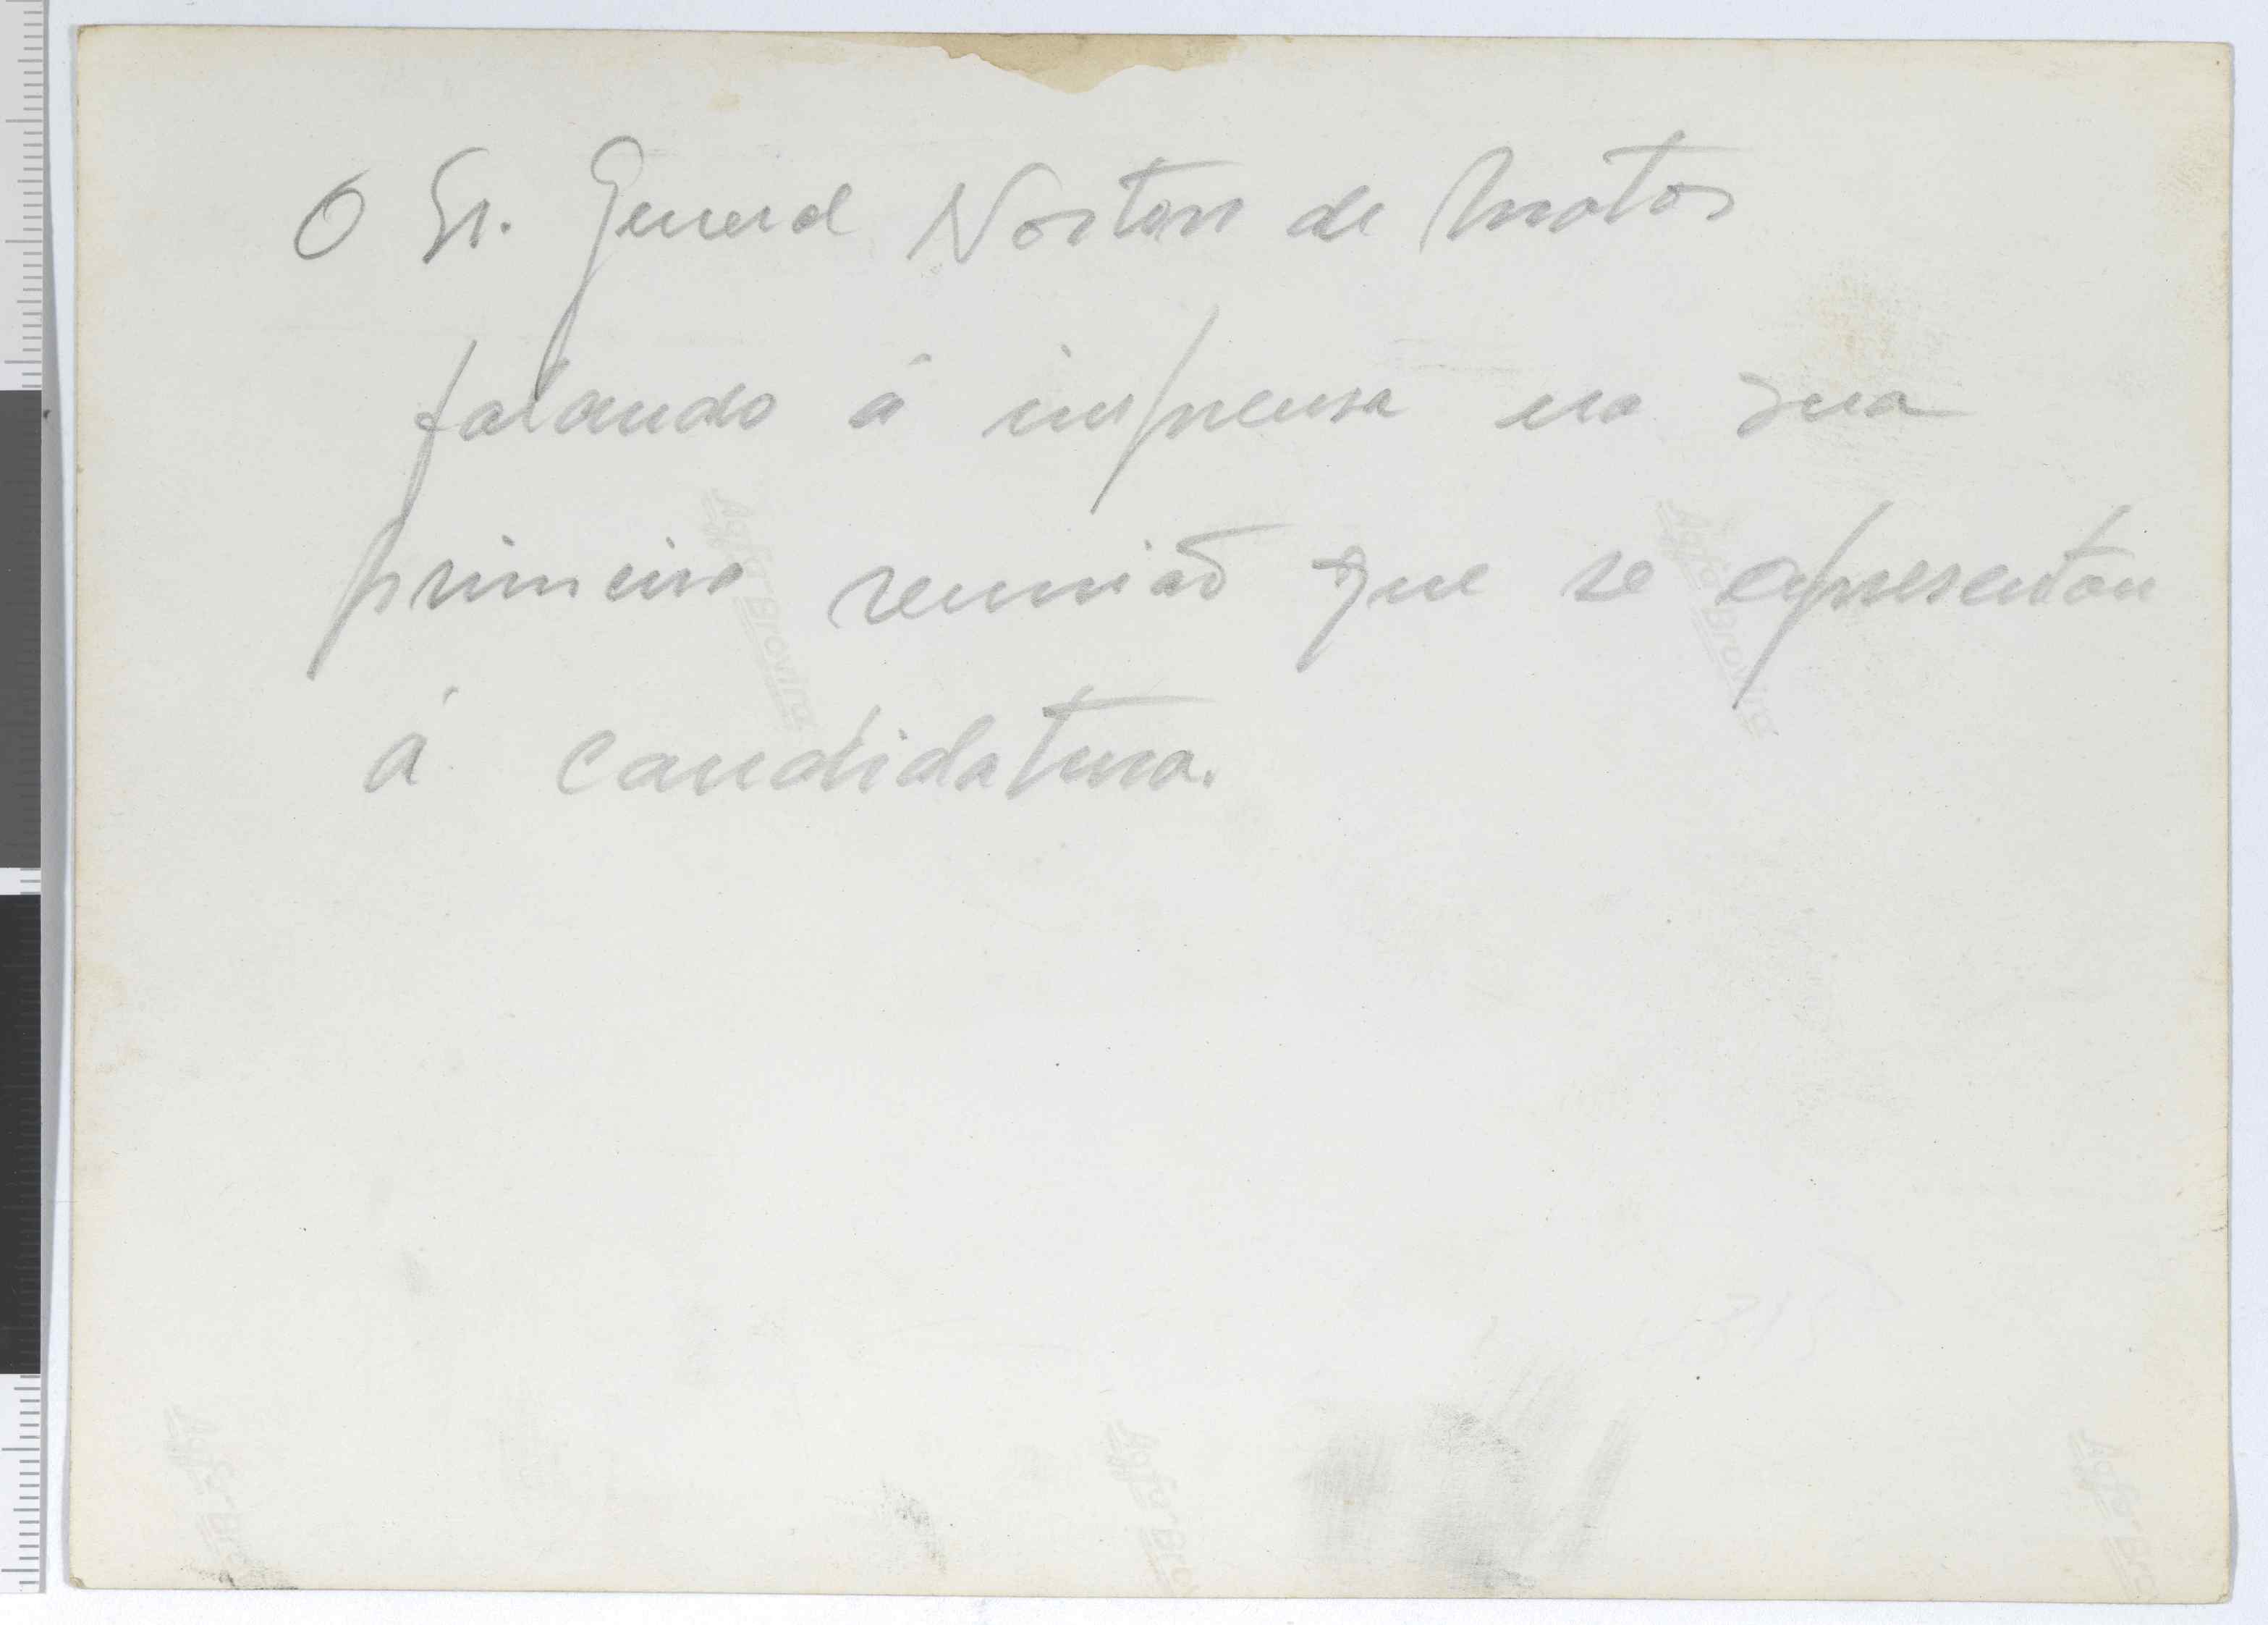 O Sr. General Norton de Matos
falando á imprensa na sua
primeira reunião que se apresentou
á candidatura.
Agfa Brovira
Agfa Brovira
Agfa Bro
Agfa Brov
Agfa Bro